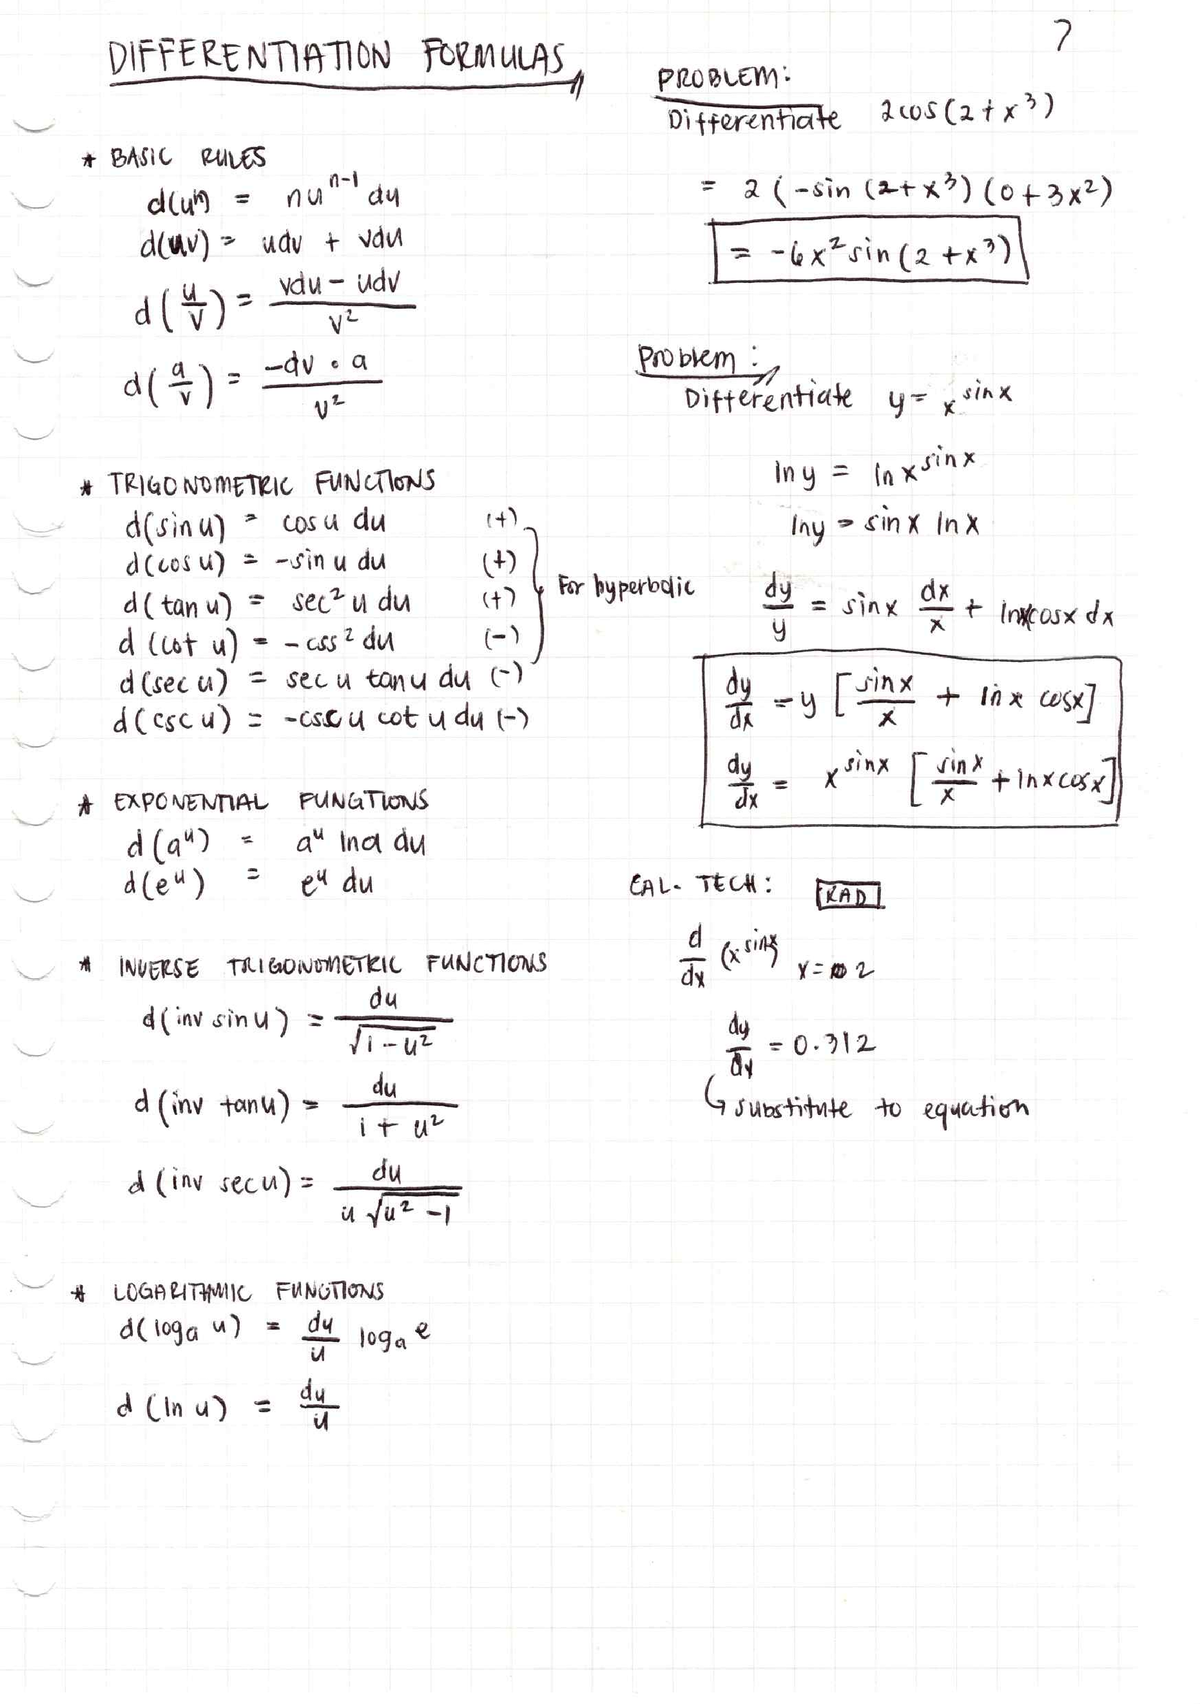 7
DIFFERENTIATION FORMULAS
* BASIC RULES
d(uⁿ) = nuⁿ⁻¹ du
d(uv) = udv + vdu
d(u/v) = (vdu - udv)/v²
d(a/v) = (-dv • a)/v²
* TRIGONOMETRIC FUNCTIONS
d(sin u) = cos u du (+)
d(cos u) = -sin u du (+)
d(tan u) = sec² u du (+)
d(cot u) = -css² du (-)
d(sec u) = sec u tan u du (-)
d(csc u) = -csc u cot u du (-)
For hyperbolic
* EXPONENTIAL FUNCTIONS
d(aᵘ) = aᵘ lna du
d(eᵘ) = eᵘ du
* INVERSE TRIGONOMETRIC FUNCTIONS
d(inv sin u) = du/√(1-u²)
d(inv tan u) = du/(1+u²)
d(inv sec u) = du/(u√(u²-1))
* LOGARITHMIC FUNCTIONS
d(logₐ u) = du/u logₐ e
d(ln u) = du/u
PROBLEM:
Differentiate 2cos(2+x³)
= 2(-sin(2+x³)(0+3x²)
= -6x² sin(2+x³)
Problem:
Differentiate y = x^sinx
ln y = ln x^sinx
lny = sinx lnx
dy/y = sinx dx/x + lnxcosx dx
dy/dx = y [sinx/x + lnx cosx]
dy/dx = x^sinx [sinx/x + lnxcosx]
CAL-TECH: RAD
d/dx (x^sinx) x=2
dy/dy = 0.312
substitute to equation